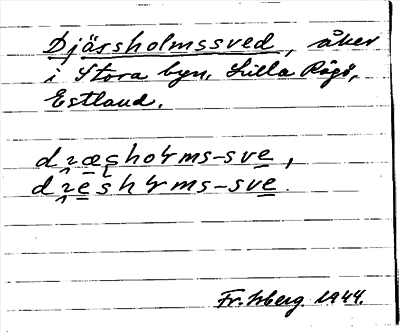 Djärsholmssved, åker
i Stora byn, Lilla Rågö,
Estland.
dɿæʂho𝼈ms-sve,
dɿesh𝼈ms-sve.
Fr. Isberg 1944.